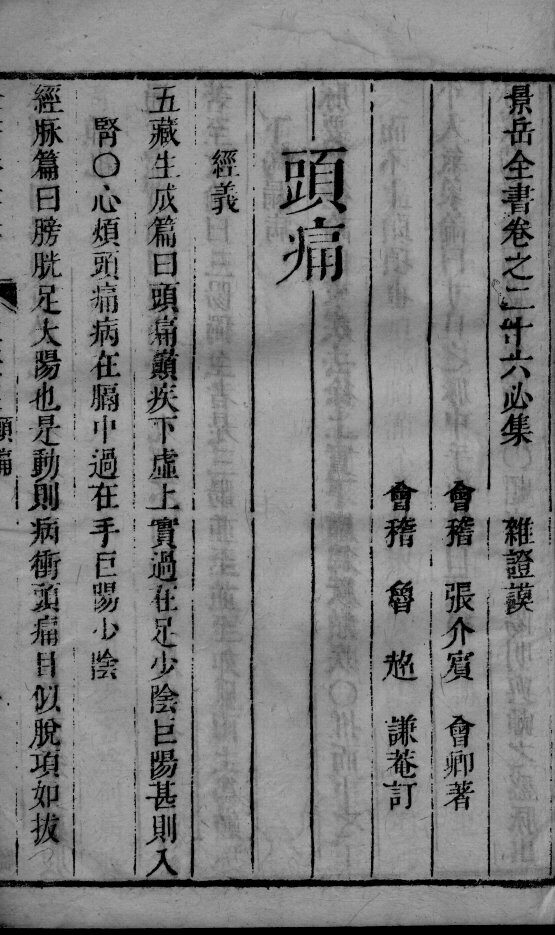 景岳全書卷之二十六必集　雜證謨
會稽　張介賓　會卿著
會稽　魯超　謙菴訂
頭痛
經義
五藏生成篇曰頭痛巔疾下虛上實過在足少陰巨陽甚則入
腎〇心煩頭痛病在膈中過在手巨陽少陰
經脉篇曰膀胱足太陽也是動則病衝頭痛目似脫項如拔
頭痛